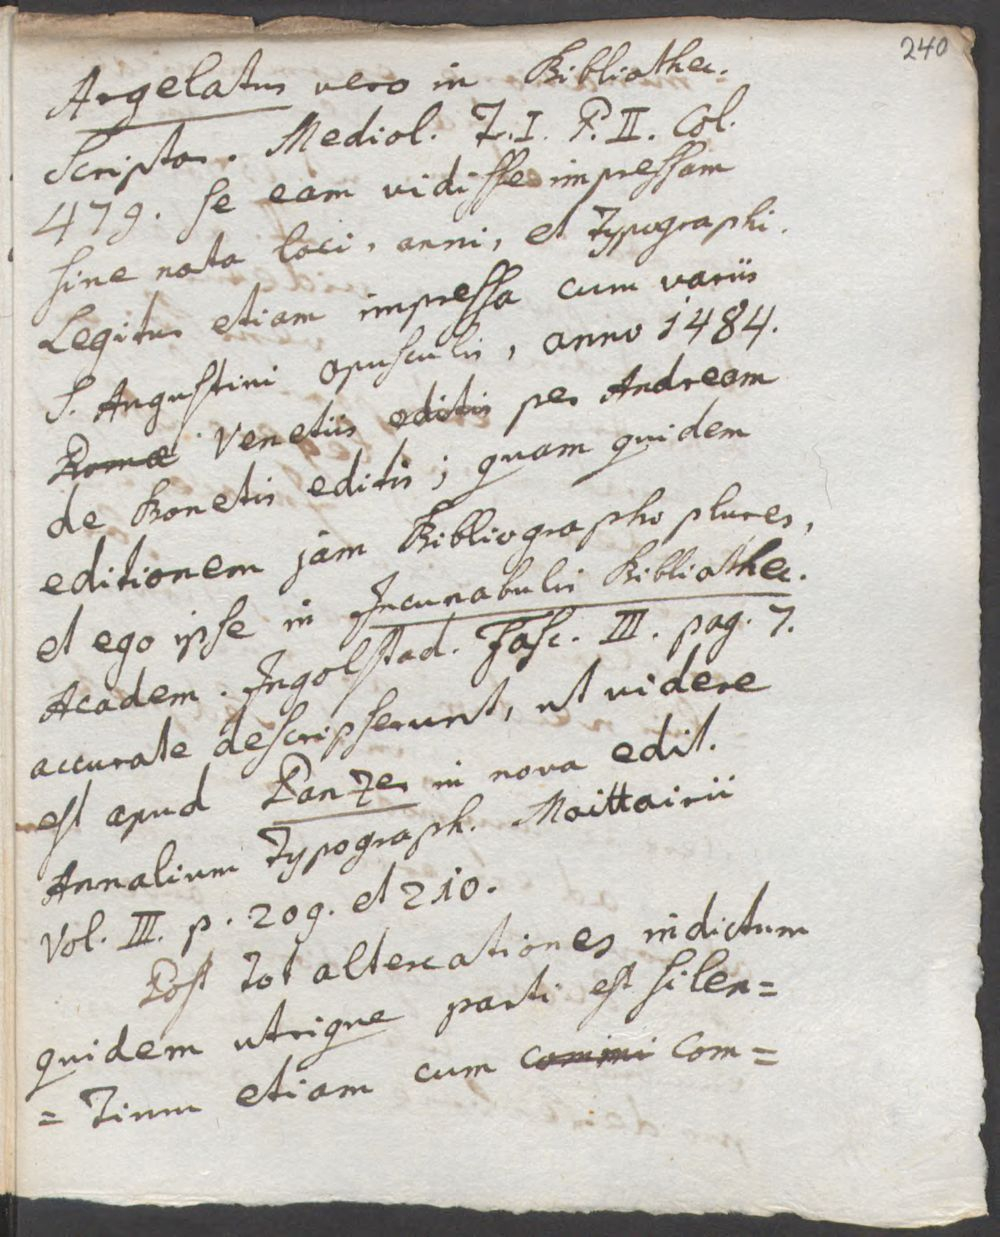 240
Argelatus vero in Bibliothec.
Scriptor. Mediol. T. I. P. II. Col.
479. se eam vidisse impressam
sine nota loci, anni, et Typographi.
Legitur etiam impressa cum variis
S. Augustini opusculis, anno 1484.
Romæ Venetiis editis per Andream
de Bonetis editis; quam quidem
editionem jam Bibliographo plures,
et ego ipse in Incunabulis Bibliothec.
Academ. Ingolstad. Fasc. III. pag. 7.
accurate descripserunt, ut videre
est apud Panzer in nova edit.
Annalium Typograph. Maittairii
Vol. III. p. 209. et 210.
Post tot altercationes indictum
quidem utrique parti est silen=
=tium etiam cum commi Com=